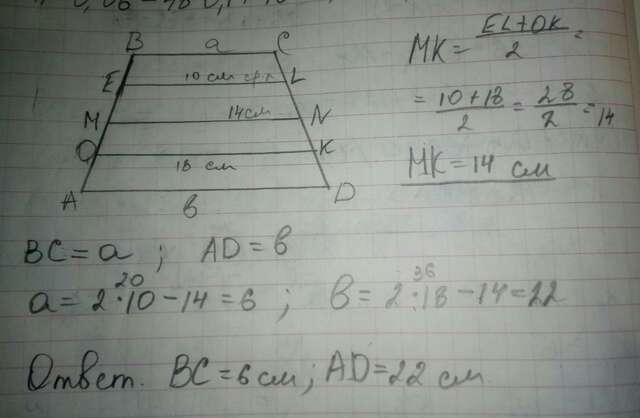 B a C
E 10 см L
M 14 см N
O 18 см K
A в D
MK = EL+OK / 2 =
= 10+18 / 2 = 28 / 2 = 14
MK = 14 см
BC = a ; AD = в
20 36
a = 2·10 − 14 = 6 ; в = 2·18 − 14 = 22
Ответ. BC = 6 см ; AD = 22 см